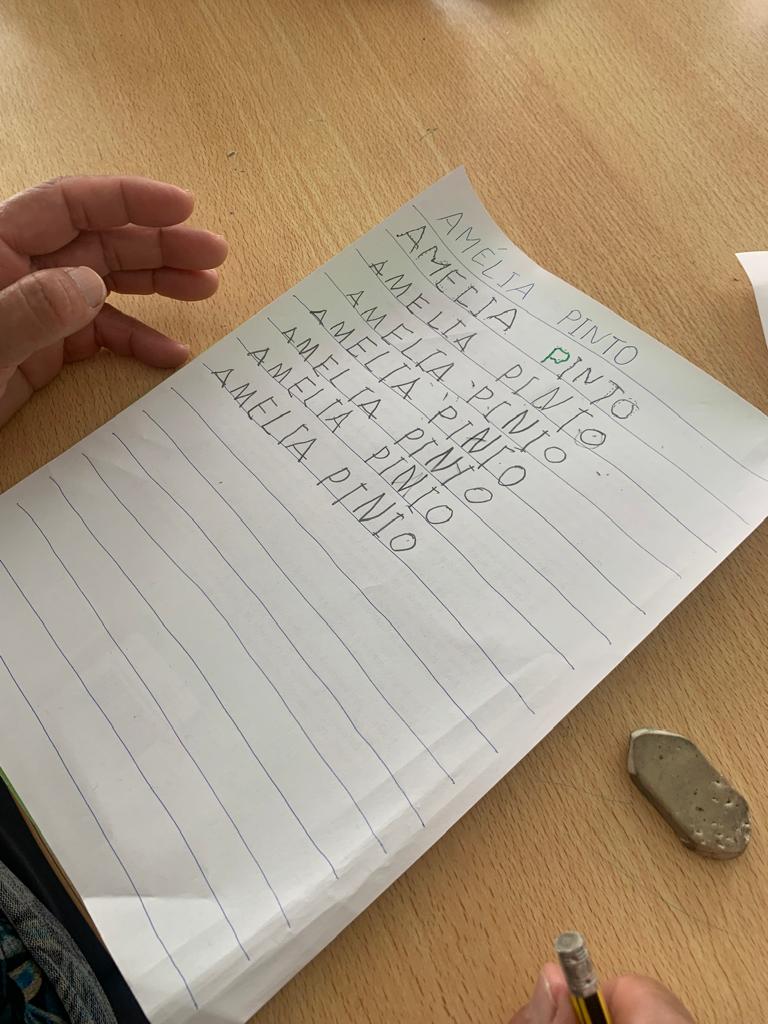 AMÉLIA PINTO
AMELIA PINTO
AMELIA PINTO
AMELIA PINTO
AMELIA PINTO
AMELIA PINTO
AMELIA PINTO
AMELIA PINTO